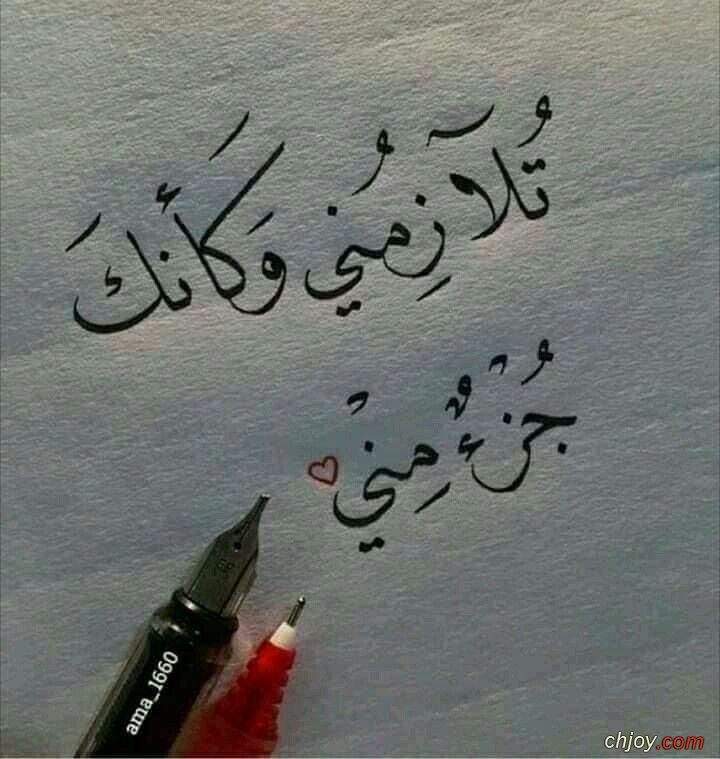 تُلآزِمُني وَكَأنكَ
جُزْءٌ مِنيْ
ama_1660
chjoy.com